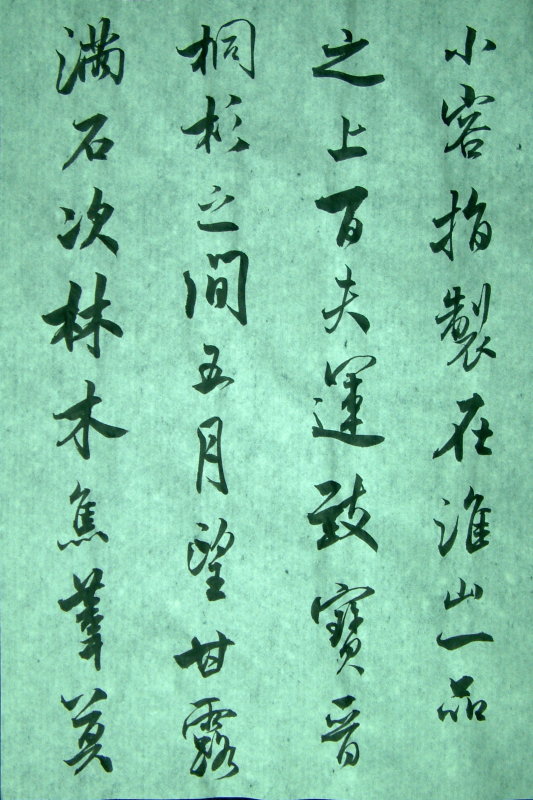 小容指製在淮山一品
之上百夫運致寶晉
桐杉之間五月望甘露
滿石次林木焦葦莫